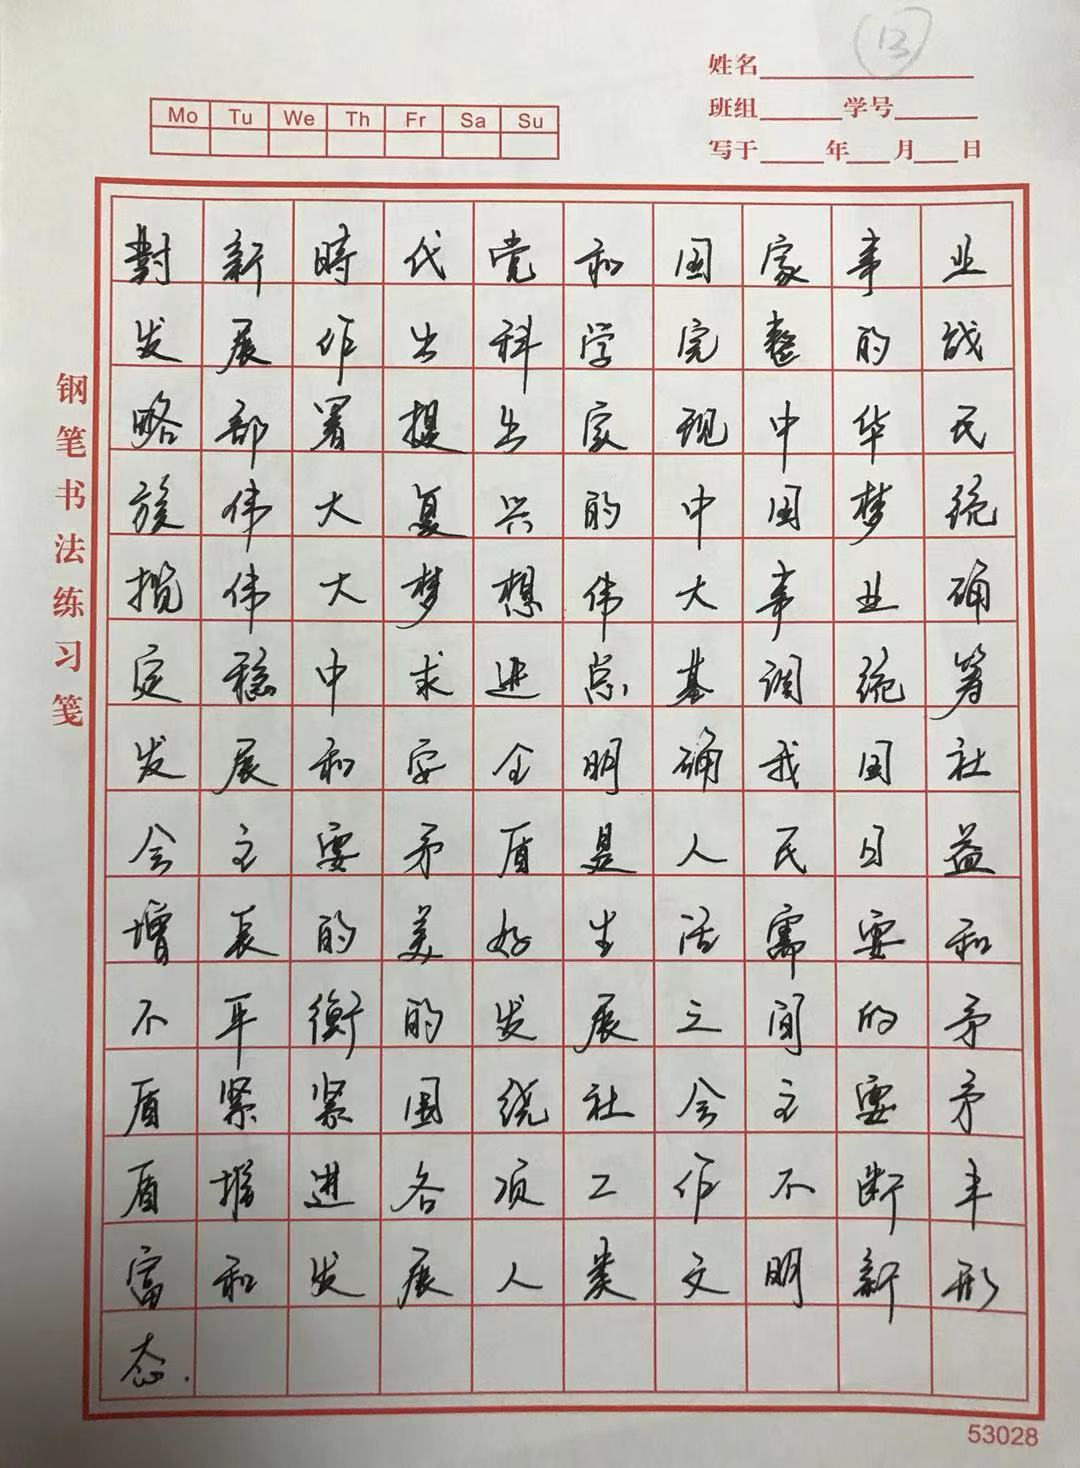 13
姓名
班组 学号
写于 年 月 日
Mo Tu We Th Fr Sa Su
钢笔书法练习笺
對新時代党和国家事业
发展作出科学完整的战
略部署提出实现中华民
族伟大复兴的中国梦统
揽伟大梦想伟大事业确
定稳中求进总基调统筹
发展和安全明确我国社
会主要矛盾是人民日益
增长的美好生活需要和
不平衡的发展之间的矛
盾紧紧围绕社会主要矛
盾推进各项工作不断丰
富和发展人类文明新形
态.
53028